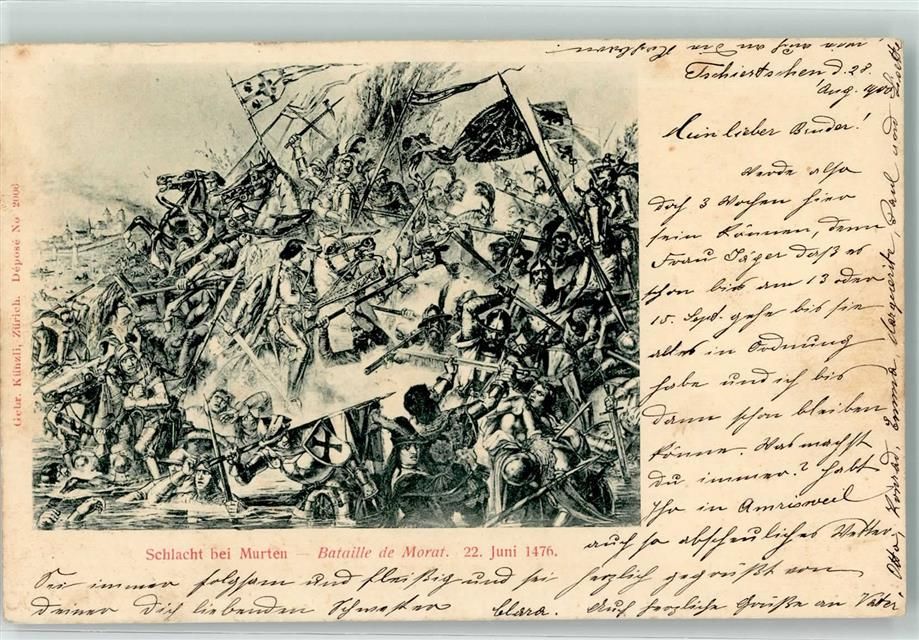 Tschiertschen d. 28.
Aug. 1900
Mein lieber Bruder!
Werde also
doch 3 Wochen hier
sein können, denn
Frau Jäger daß es
schon bis am 13 oder
15. Sept. gehe bis sie
alles in Ordnung
habe und ich bis
dann schon bleiben
könne. Was machst
Du immer? habt
Ihr in Amrisweil
auch so abscheuliches Wetter
Sei immer folgsam und fleißig und sei herzlich gegrüßt von
deiner Dich liebenden Schwester Clara. Auch herzliche Grüße an Vater
Otto, Konrad, Emma Marguerite, Paul und
von auch an die
Schlacht bei Murten — Bataille de Morat. 22. Juni 1476.
Gebr. Künzli, Zürich. Déposé No 2006